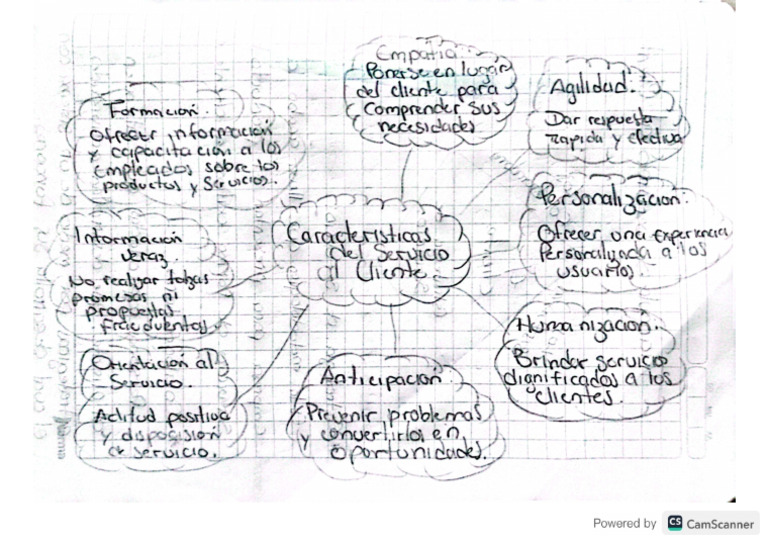 Empatia
Ponerse en lugar
del cliente para
Comprender sus
necesidades
Agilidad.
Dar respuesta
rapida y efectiva
Formacion.
Ofrecer informacion
y capacitación a los
empleados sobre los
productos y Servicios.
Personalización.
Ofrecer una experiencia
Personalizada a los
usuarios.
Caracteristicas
del servicio
al Cliente.
Informacion
veraz.
No realizar falzas
promesas ni
propuestas
Humanización.
Brindar servicio
dignificados a los
clientes.
Orientación al
Servicio.
Actitud positiva
y disposision
servicio.
Anticipación.
Prevenir problemas
y convertirlos en
oportunidades.
Powered by CS CamScanner